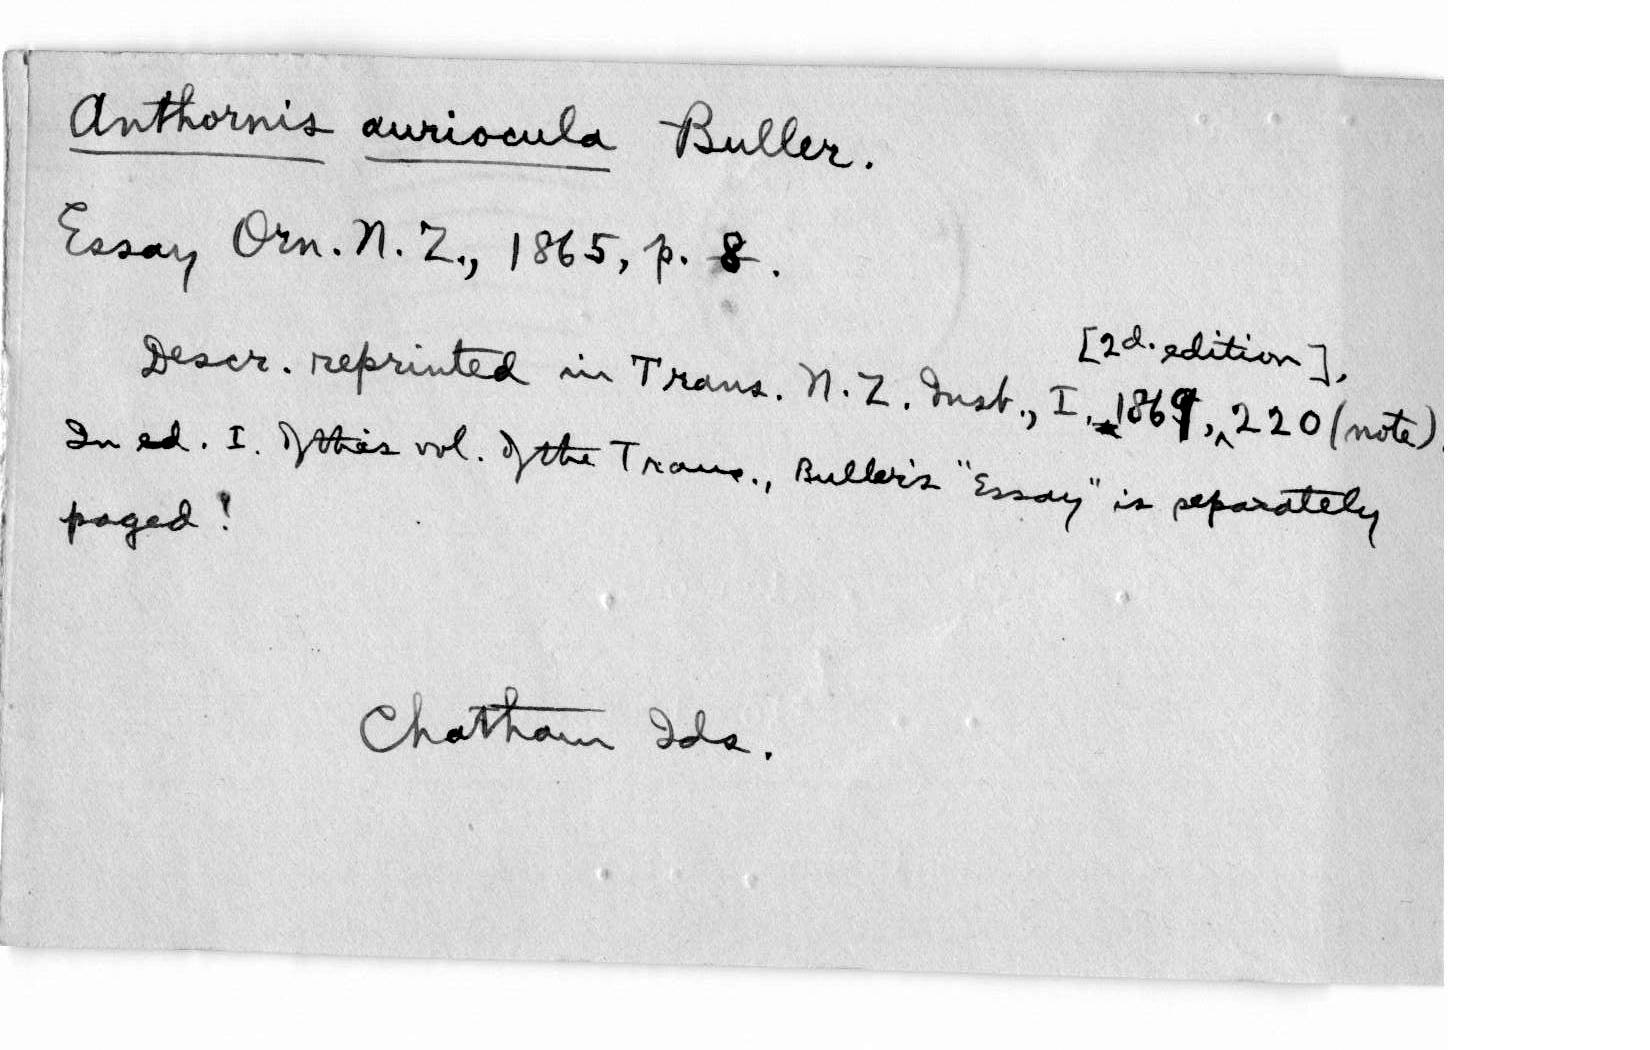 Anthornis auriocula Buller.
Essay Orn. N. Z., 1865, p. 8.
[2d. edition],
Descr. reprinted in Trans. N. Z. Inst., I, 1869, 220 (note).
In ed. I. of this vol. of the Trans., Buller's "Essay" is separately
paged!
Chatham Ids.